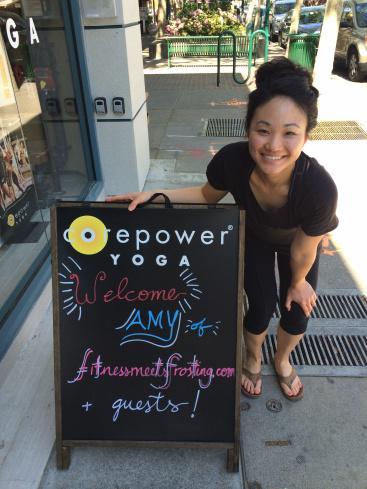 GA
corepower®
YOGA
Welcome
AMY of
fitnessmeetsfrosting.com
+ guests!